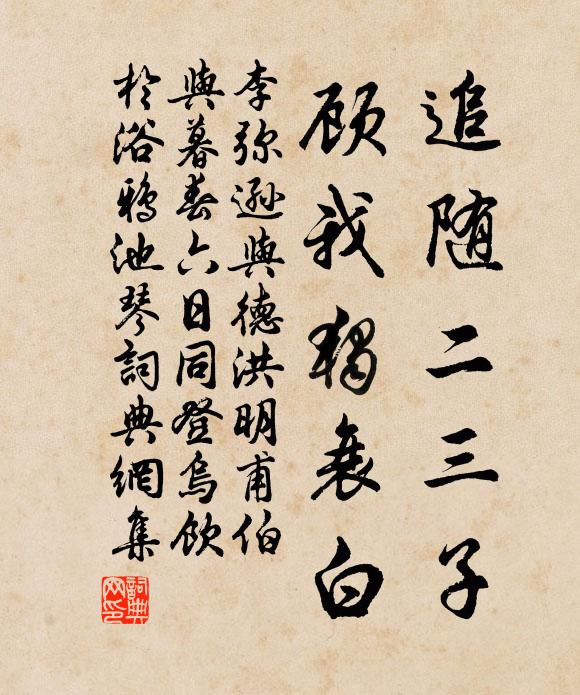 追随二三子
顾我獨衰白
李弥遜與德洪明甫伯
與暮春六日同登烏飲
於浴鴉池琴詞典網集
詞典
网印